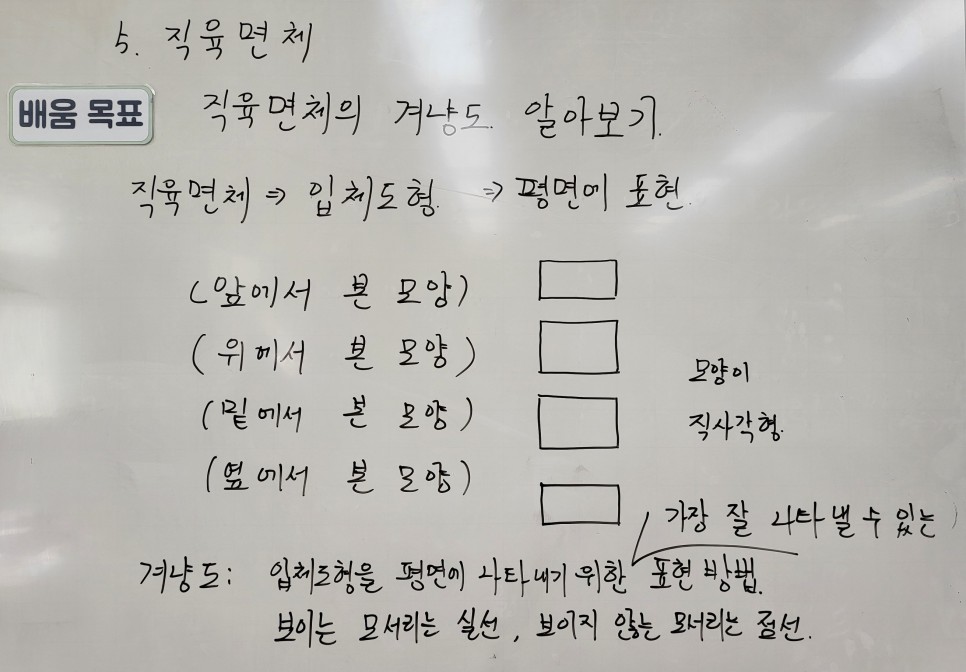 5. 직육면체
배움 목표
직육면체의 겨냥도 알아보기.
직육면체 ⇒ 입체도형. ⇒ 평면에 표현.
(앞에서 본 모양)
(위에서 본 모양)
(밑에서 본 모양)
(옆에서 본 모양)
모양이
직사각형.
가장 잘 나타낼 수 있는
겨냥도: 입체도형을 평면에 나타내기 위한 표현 방법.
보이는 모서리는 실선, 보이지 않는 모서리는 점선.